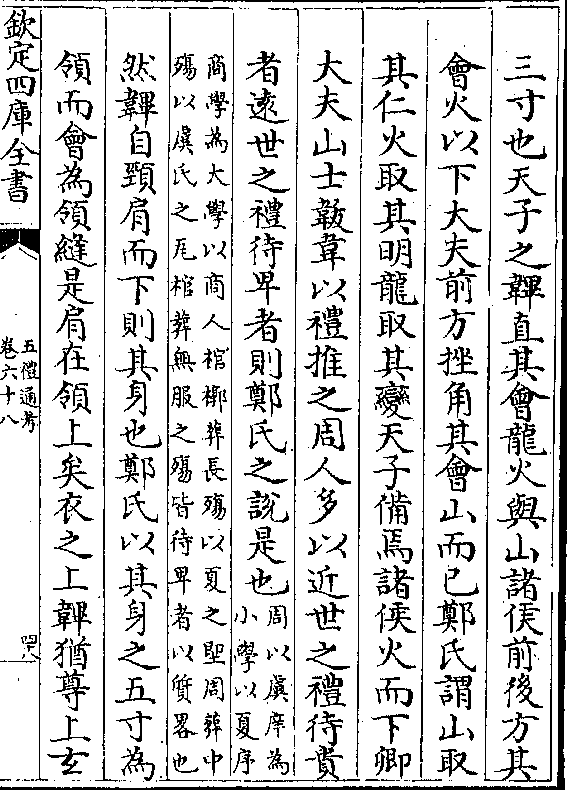 三寸也天子之韠直其會龍火與山諸侯前後方其
會火以下大夫前方挫角其會山而已鄭氏謂山取
其仁火取其明龍取其變天子備焉諸侯火而下卿
大夫山士韍韋以禮推之周人多以近世之禮待貴
者遠世之禮待卑者則鄭氏之説是也周以虞庠為
小學以夏序
商學為大學以商人棺槨葬長殤以夏之堲周葬中
殤以虞氏之瓦棺葬無服之殤皆待卑者以質畧也
然韠自頸肩而下則其身也鄭氏以其身之五寸為
領而會為領縫是肩在領上矣衣之上韠猶尊上玄
欽定四庫全書
五禮通考
卷六十八
四八